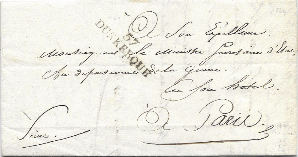 57
DUNKERQUE
A Son Excellence
Monseigneur le Ministre Secrétaire d'Etat
Au département de la Guerre
en son hotel
A Paris